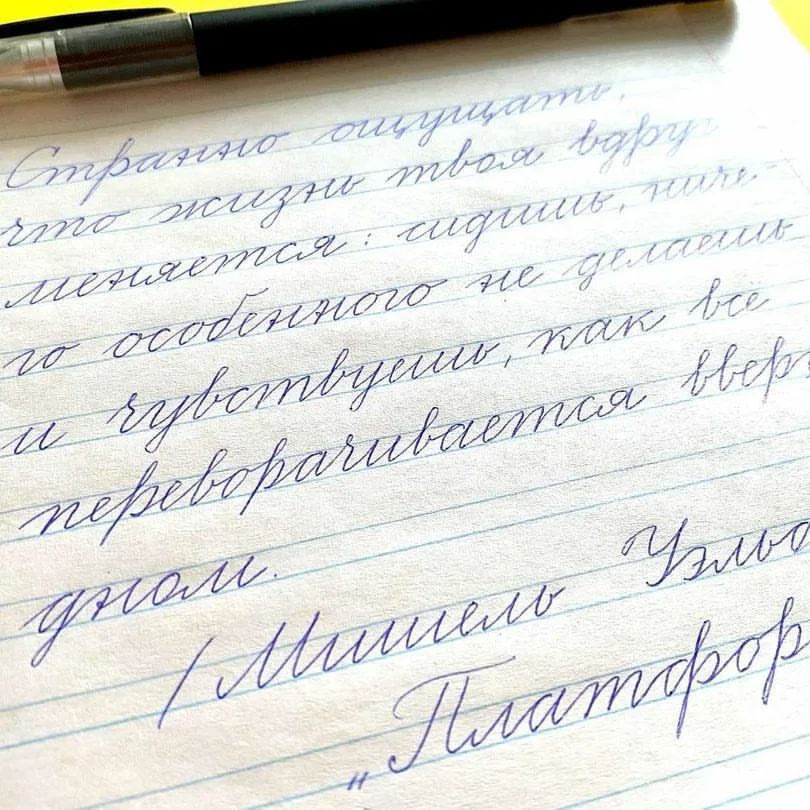 Странно ощущать,
что жизнь твоя вдруг
меняется: сидишь, ниче-
го особенного не делаешь
и чувствуешь, как всё
переворачивается вверх
дном.
(Мишель Уэльб
„Платфор